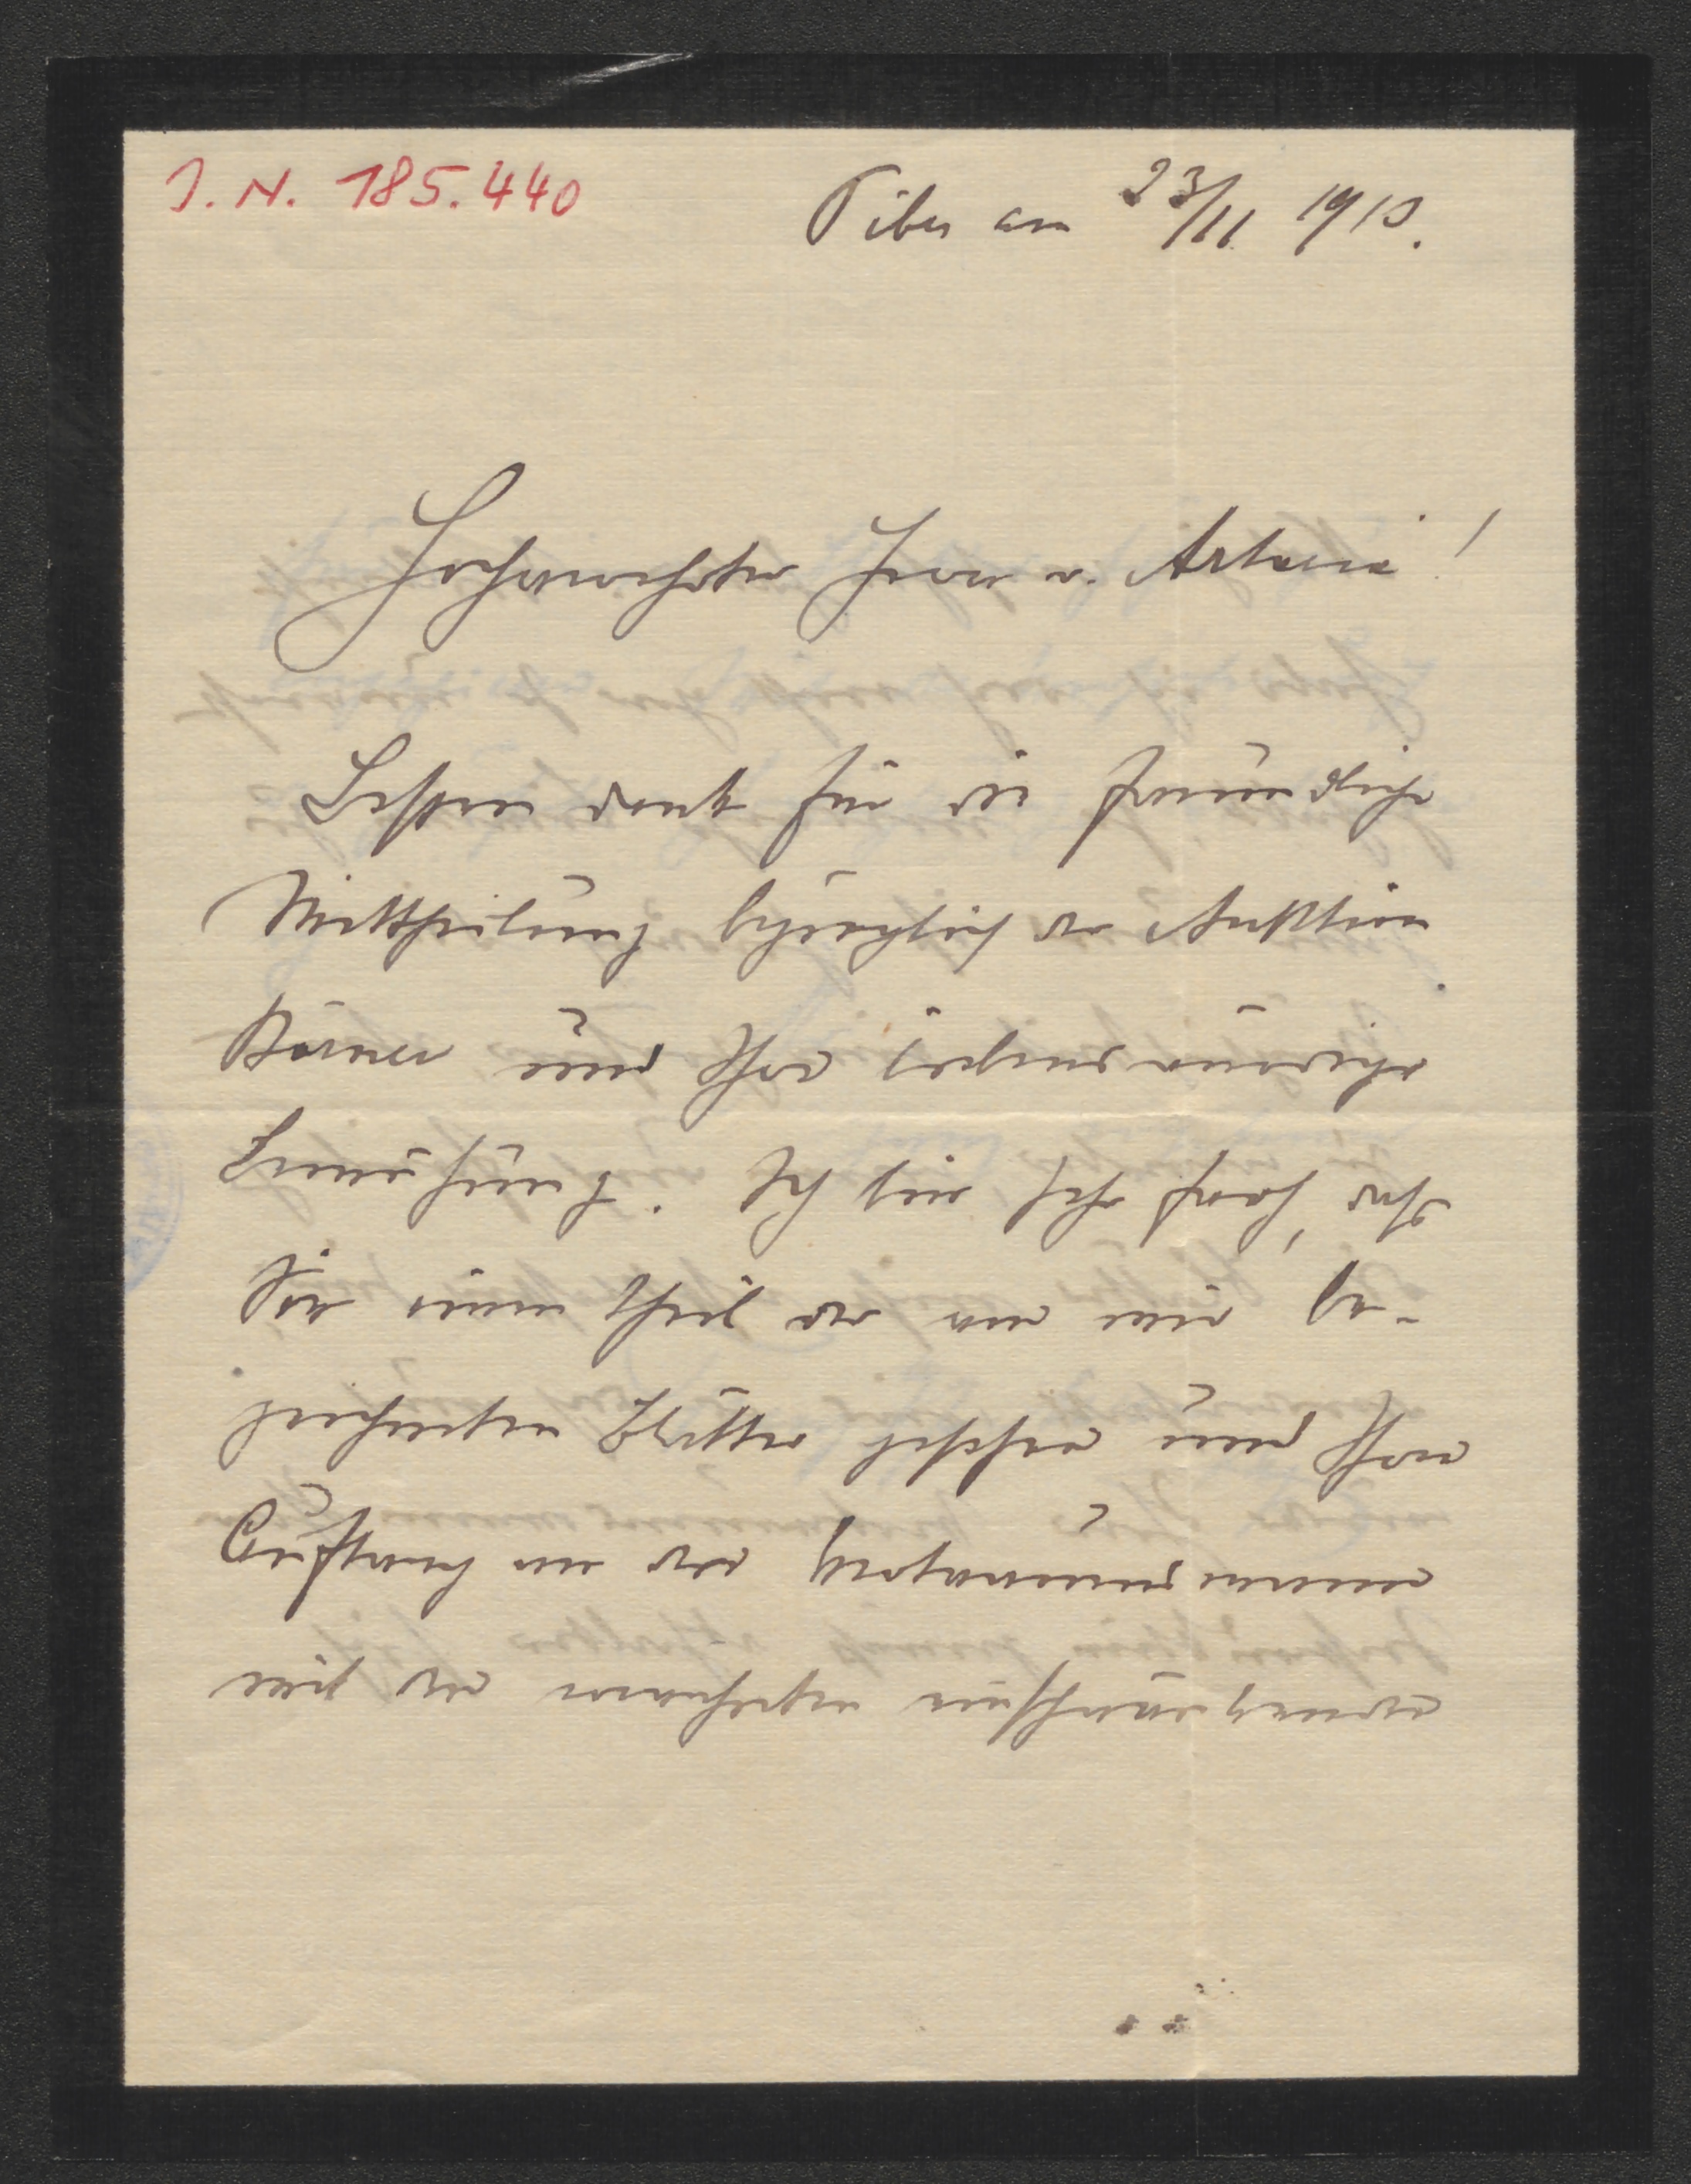 J. N. 185.440
Piber am 23/11 1910.
Hochverehrter Herr v. Artaria!
Besten Dank für die freundliche
Mittheilung bezüglich der Auktion
und Ihre liebenswürdige
Bemühung. Ich bin sehr froh, daß
Sie einen Theil der von mir be-
zeichneten Blätter und Ihre
Auftrag an den
mit der